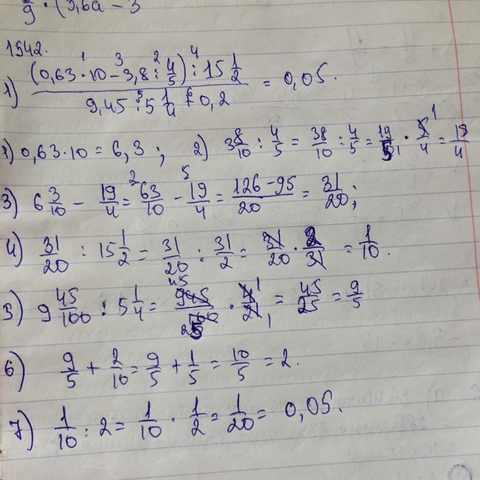 9 · (5,6a - 3
1542.
1) ((0,63 · 10 - 3,8 : 4/5) : 15 1/2) / (9,45 : 5 1/4 + 0,2) = 0,05.
1) 0,63 · 10 = 6,3 ; 2) 3 8/10 : 4/5 = 38/10 : 4/5 = 19/5 · 5/4 = 19/4
3) 6 3/10 - 19/4 = 63/10 - 19/4 = (126 - 95)/20 = 31/20 ;
4) 31/20 : 15 1/2 = 31/20 : 31/2 = 31/20 · 2/31 = 1/10.
5) 9 45/100 : 5 1/4 = 945/100 · 4/21 = 45/25 = 9/5
6) 9/5 + 2/10 = 9/5 + 1/5 = 10/5 = 2.
7) 1/10 : 2 = 1/10 · 1/2 = 1/20 = 0,05.